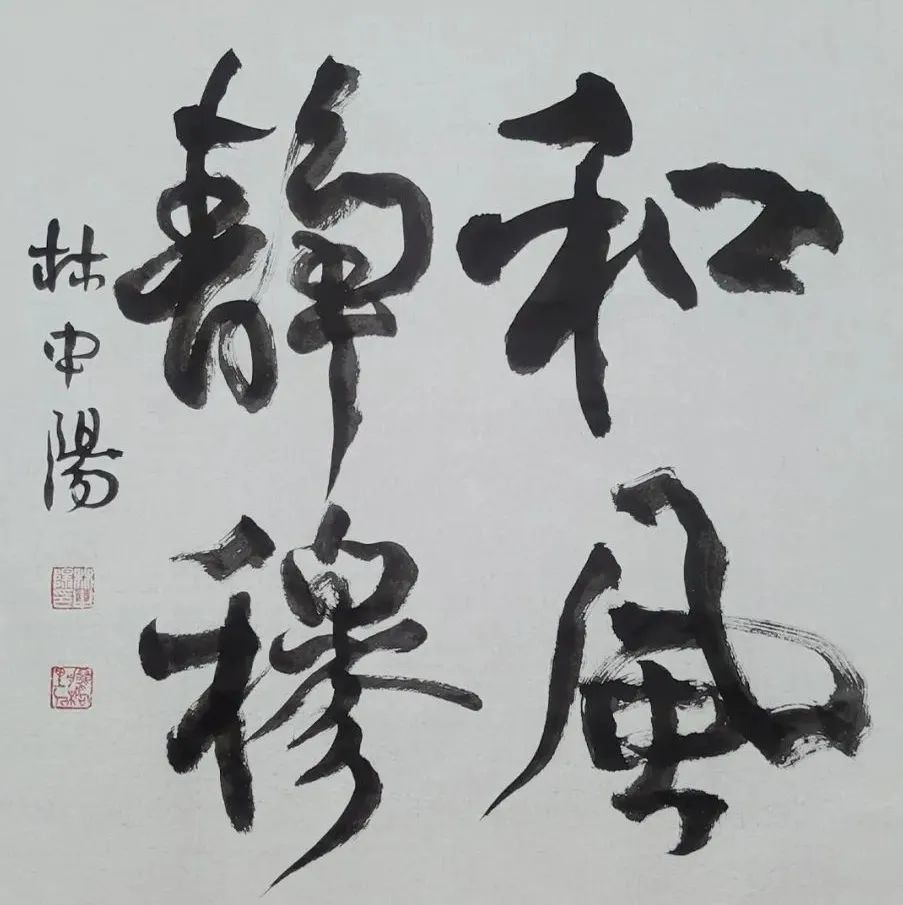 和風
靜穆
林中陽